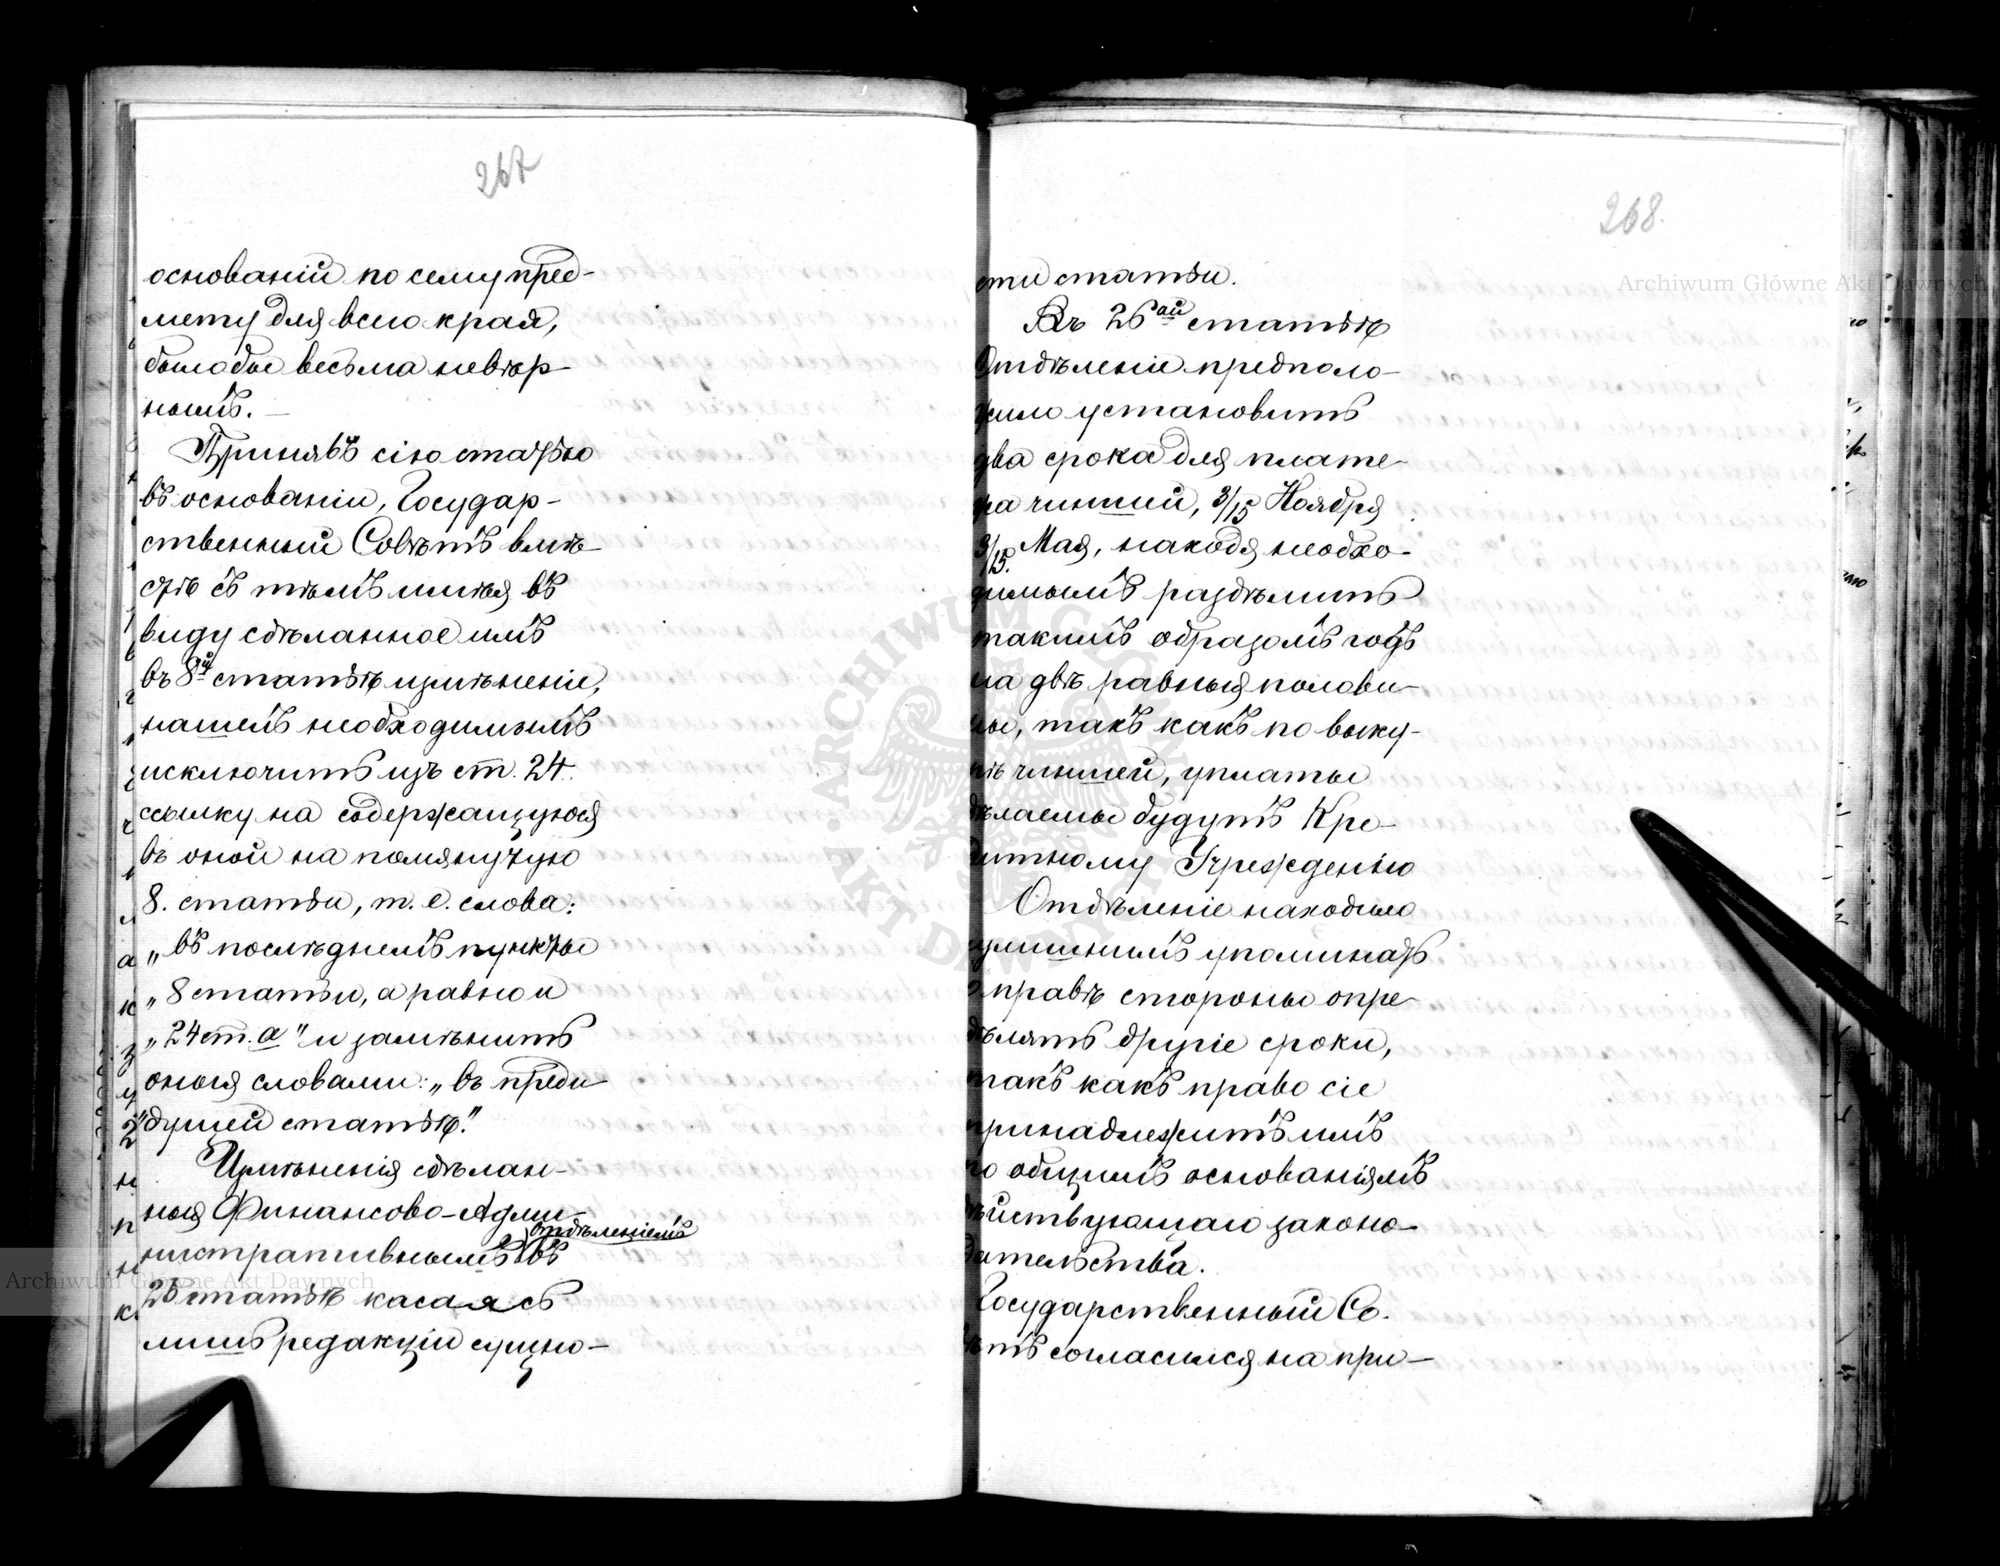 267
основаній по сему пред-
мету для всего края,
было бы весьма невѣр-
нымъ. —
Принявъ сію статью
въ основаніи, Государ-
ственный Совѣтъ вмѣ-
стѣ съ тѣмъ имѣя въ
виду сдѣланное имъ
въ 8й статьѣ измѣненіе,
нашелъ необходимымъ
исключить изъ ст. 24.
ссылку на содержащуюся
въ оной на помянутую
8. статьи, т. е. слова:
„въ послѣднемъ пункты
„8 статьи, а равно и
„24 ст. а" и замѣнить
оныя словами: „въ преди-
"дущей статьѣ."
Измѣненія сдѣлан-
ныя Финансово-Адми-
нистративнымъ отдѣленіемъ въ
26 статьѣ касаясь
лишь редакціи сущно-
268.
сти статьи.
Въ 26ой статьѣ
Отдѣленіе предполо-
жило установить
два срока для плате-
жа чиншей, 3/15 Ноября
3/15. Мая, находя необхо-
димымъ раздѣлить
такимъ образомъ годъ
на двѣ равныя полови-
ны, такъ какъ по выку-
пѣ чиншей, уплаты
дѣлаемы будутъ Кре-
дитному Учрежденію
Отдѣленіе находило
излишнимъ упоминать
о правѣ стороны опре-
дѣлять другіе сроки,
такъ какъ право сіе
принадлежитъ имъ
по общимъ основаніямъ
дѣйствующаго законо-
дательства.
Государственный Со-
вѣтъ согласился на при-
Archiwum Główne Akt Dawnych
Archiwum Główne Akt Dawnych
ARCHIWUM GŁÓWNE AKT DAWNYCH